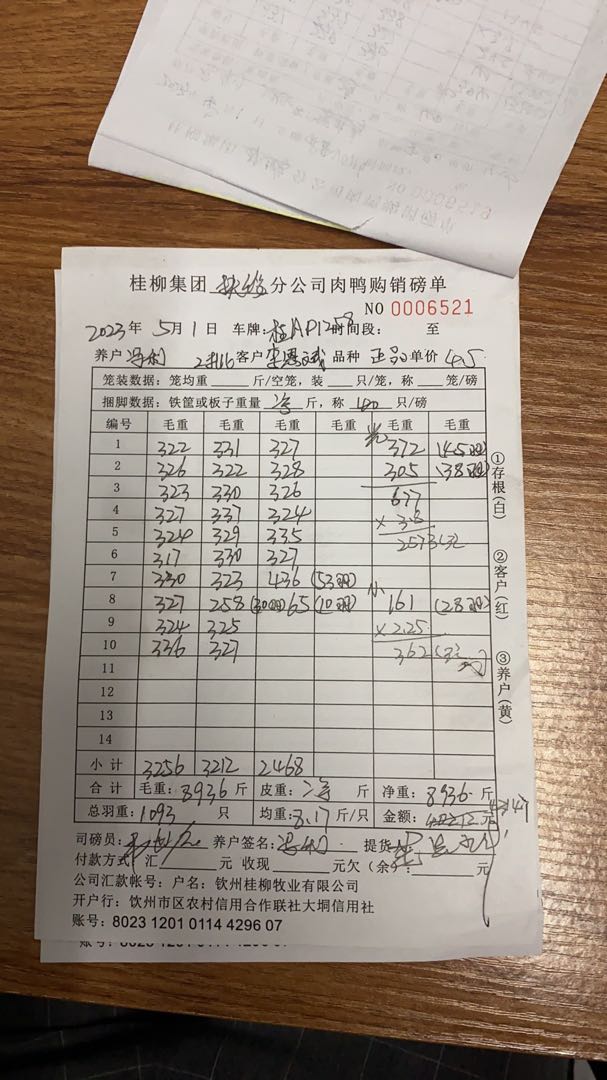 桂柳集团 分公司肉鸭购销磅单
NO 0006521
2023年 5月1日 车牌: 时间段: 至
养户 客户 品种 正品 单价 4.5
笼装数据：笼均重 斤/空笼，装 只/笼，称 笼/磅
捆脚数据：铁筐或板子重量 斤，称 100 只/磅
编号 毛重 毛重 毛重 毛重 毛重 毛重
1 322 331 327 372 (45羽)
2 326 322 328 305 (38羽)
3 323 330 326 677
4 327 337 324 ×3.8
5 324 329 335 2573元
6 317 330 327
7 330 323 436 (53羽)
8 327 258 (30羽) 65 (10羽) 小 161 (28羽)
9 324 325 ×2.25
10 336 327 362元
11
12
13
14
小计 3256 3212 2468
合计 毛重: 8936 斤 皮重: 斤 净重: 8936 斤
总羽重: 1093 只 均重: 8.17 斤/只 金额: 元
司磅员: 养户签名: 提货
付款方式：汇 元 收现 元欠（余） 元
公司汇款帐号：户名：钦州桂柳牧业有限公司
开户行：钦州市区农村信用合作联社大垌信用社
账号：8023 1201 0114 4296 07
①存根(白)
②客户(红)
③养户(黄)